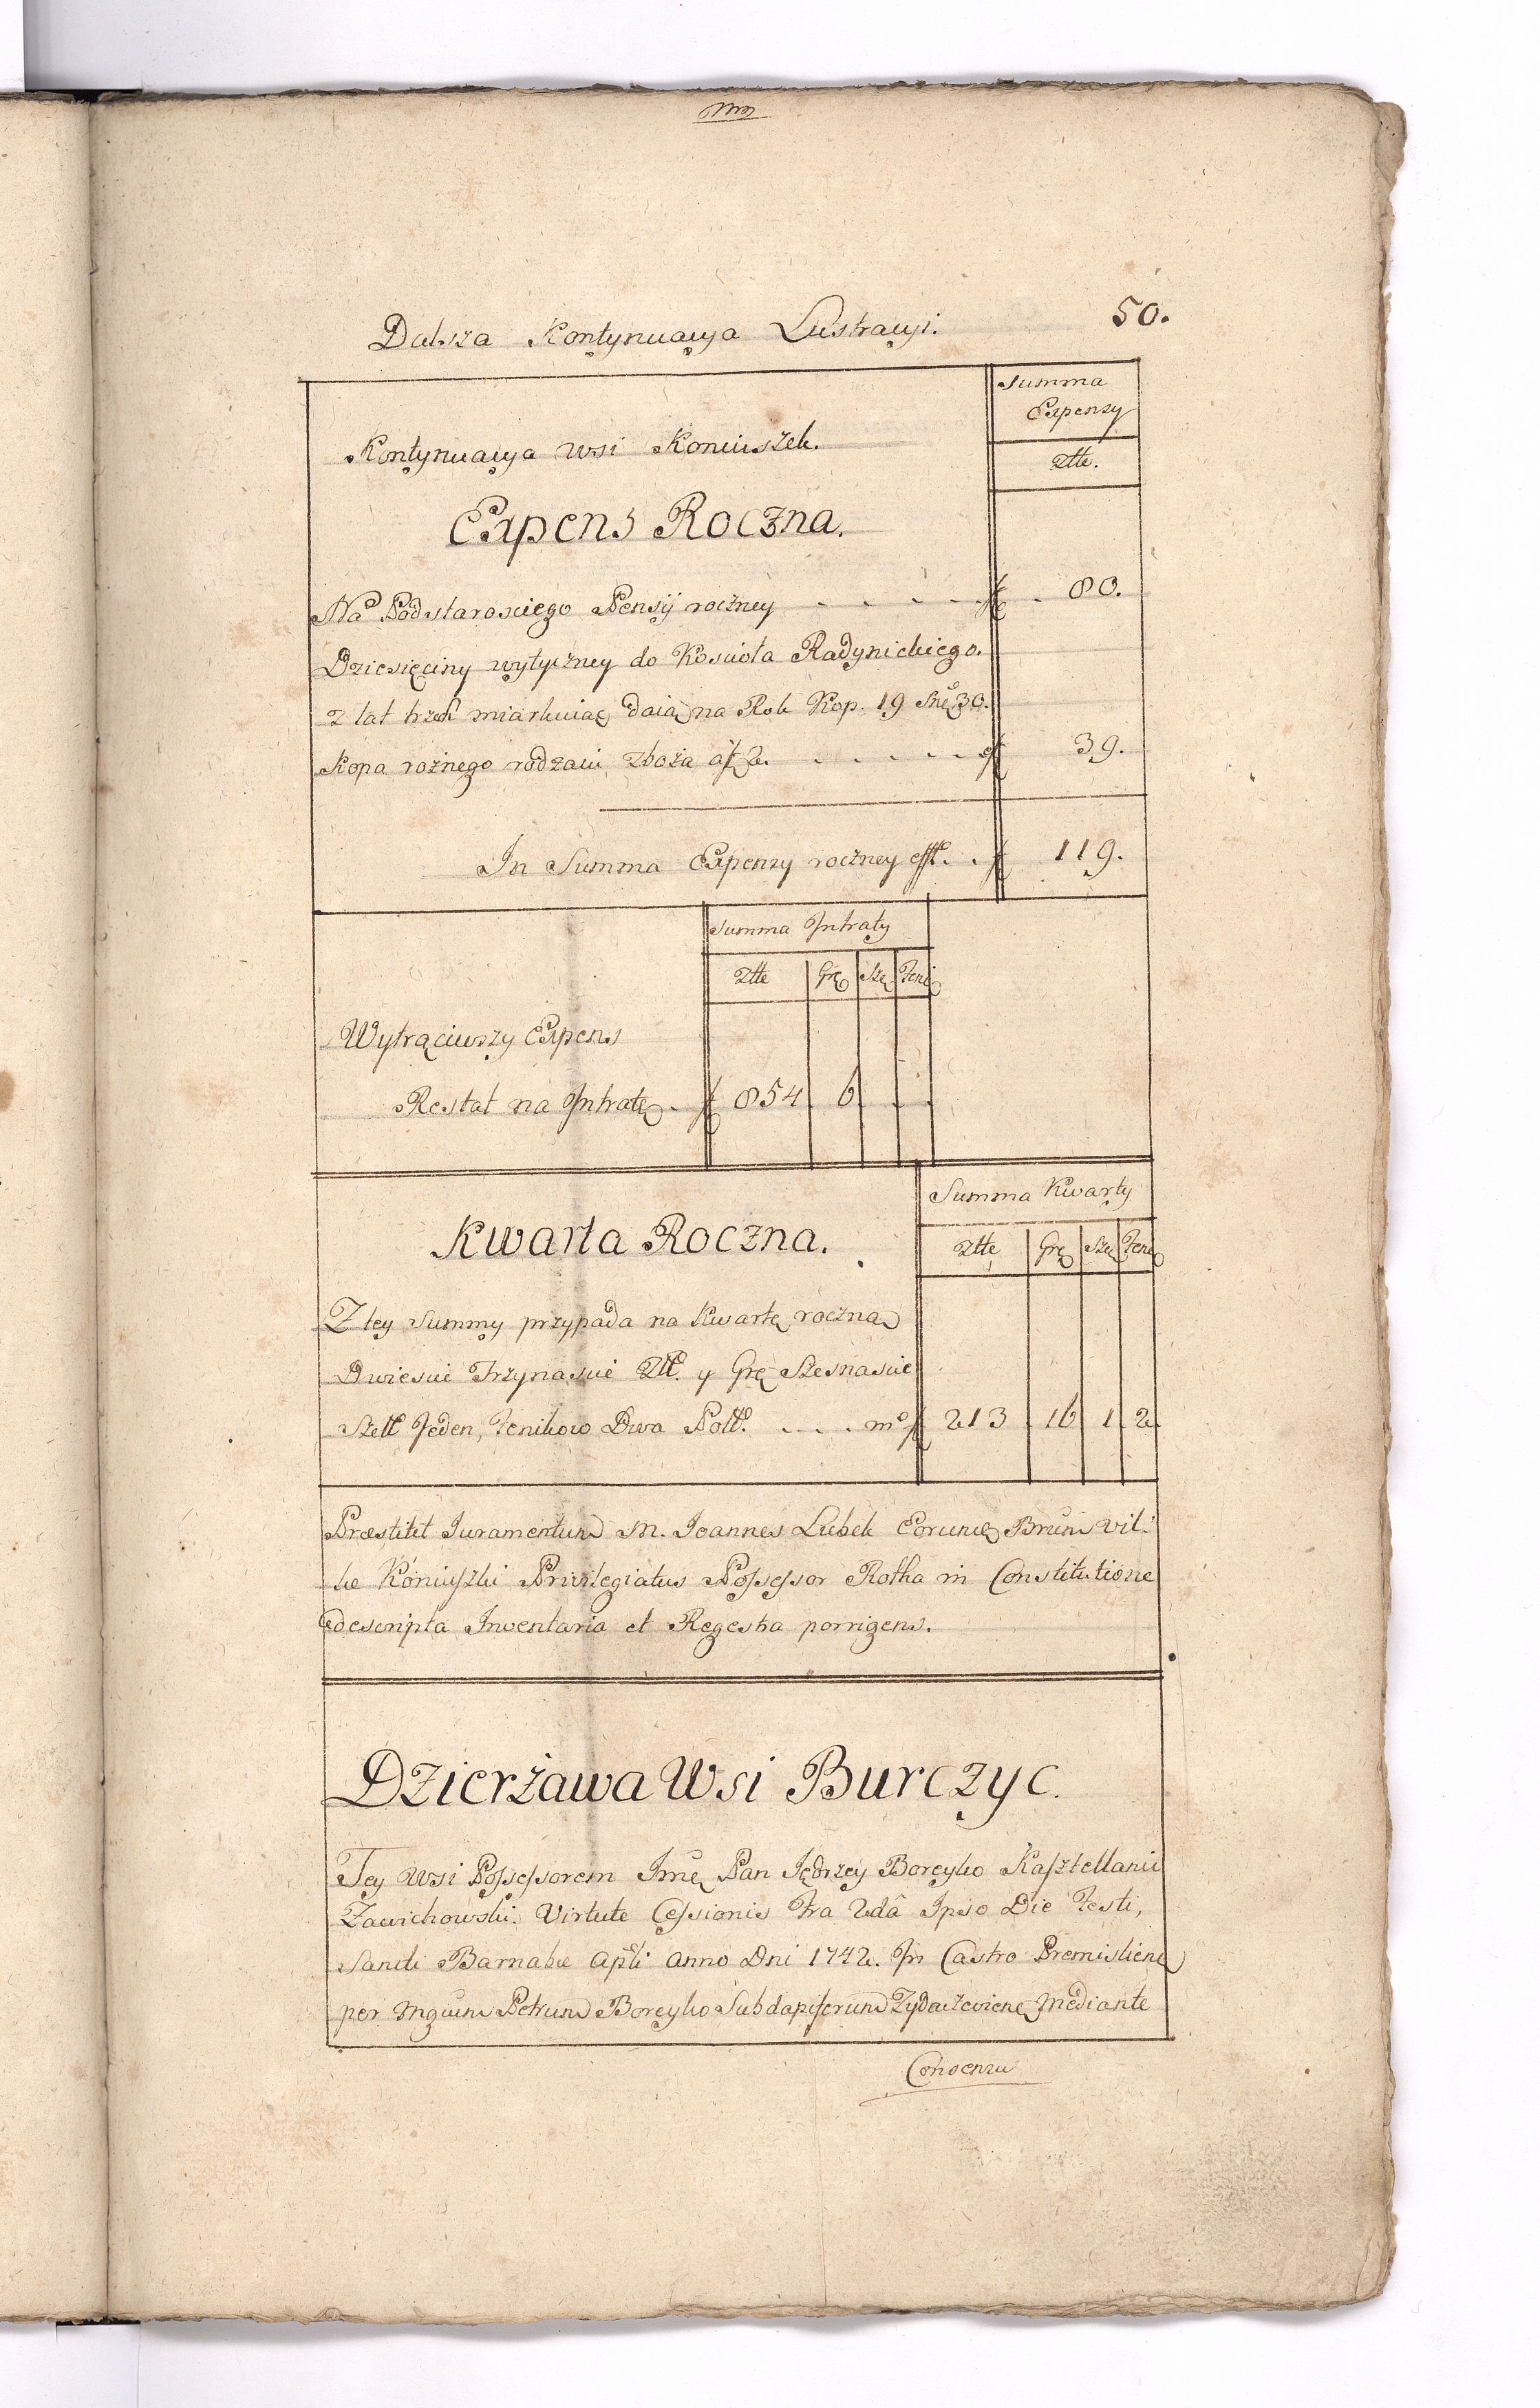 50.
Dalsza Kontynuacya Lustracyi.
Summa
Expensy
Kontynuacya wsi Koniuszek.
Złłe.
Expens Roczna.
Na Podstarosciego Pensij roczney . . . . f . 80.
Dziesięciny wytyczney do Koscioła Radynickiego.
z lat trzech miarkuiąc daią na Rok Kop. 19 Sne 30.
Kopa rożnego rodzaiu zboża a f 2. . . . . . f 39.
In Summa Expensy roczney efft. . f 119.
Summa Intraty
Złłe Gr Sze Fenì
Wytrąciwszy Expens
Restat na Intratę . f 854 6
Summa Kwarty
Kwarta Roczna.
Złłe Grę Sze Fenę
Z tey Summy przypada na Kwartę roczną
Dwiescie Trzynascie Złł. y Grę Szesnascie
Szelł Jeden, Fenikow Dwa Poll. . . . . mo f 213 16 1 2
Præstitit Juramentum M. Joannes Lubek Eorunde Bnrum Vil:
læ Koniuszki Privilegiatus Possessor Rotha in Constitutione
descripta Inventaria et Regestra porrigens.
Dzierżawa Wsi Burczyc.
Tey Wsi Possessorem Jmę Pan Jędrzey Boreyko Kasztellanic
Zawichowski. Virtute Cessionis Fra 2dâ Ipso Die Festi,
Sancti Barnabæ Apli Anno Dni 1742. In Castro Premislienę
per Mgcum Petrum Boreyko Subdapiferum Zydaczevienę Mediante
Consensu